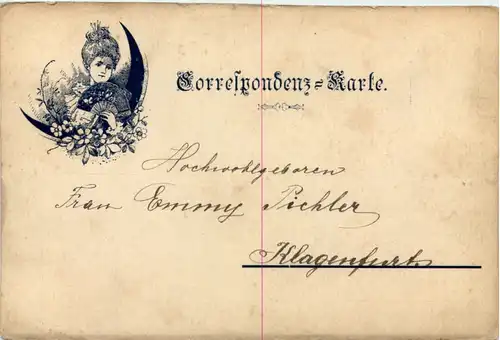 Correspondenz=Karte.
Hochwohlgeboren
Frau Emmy Pichler
Klagenfurt